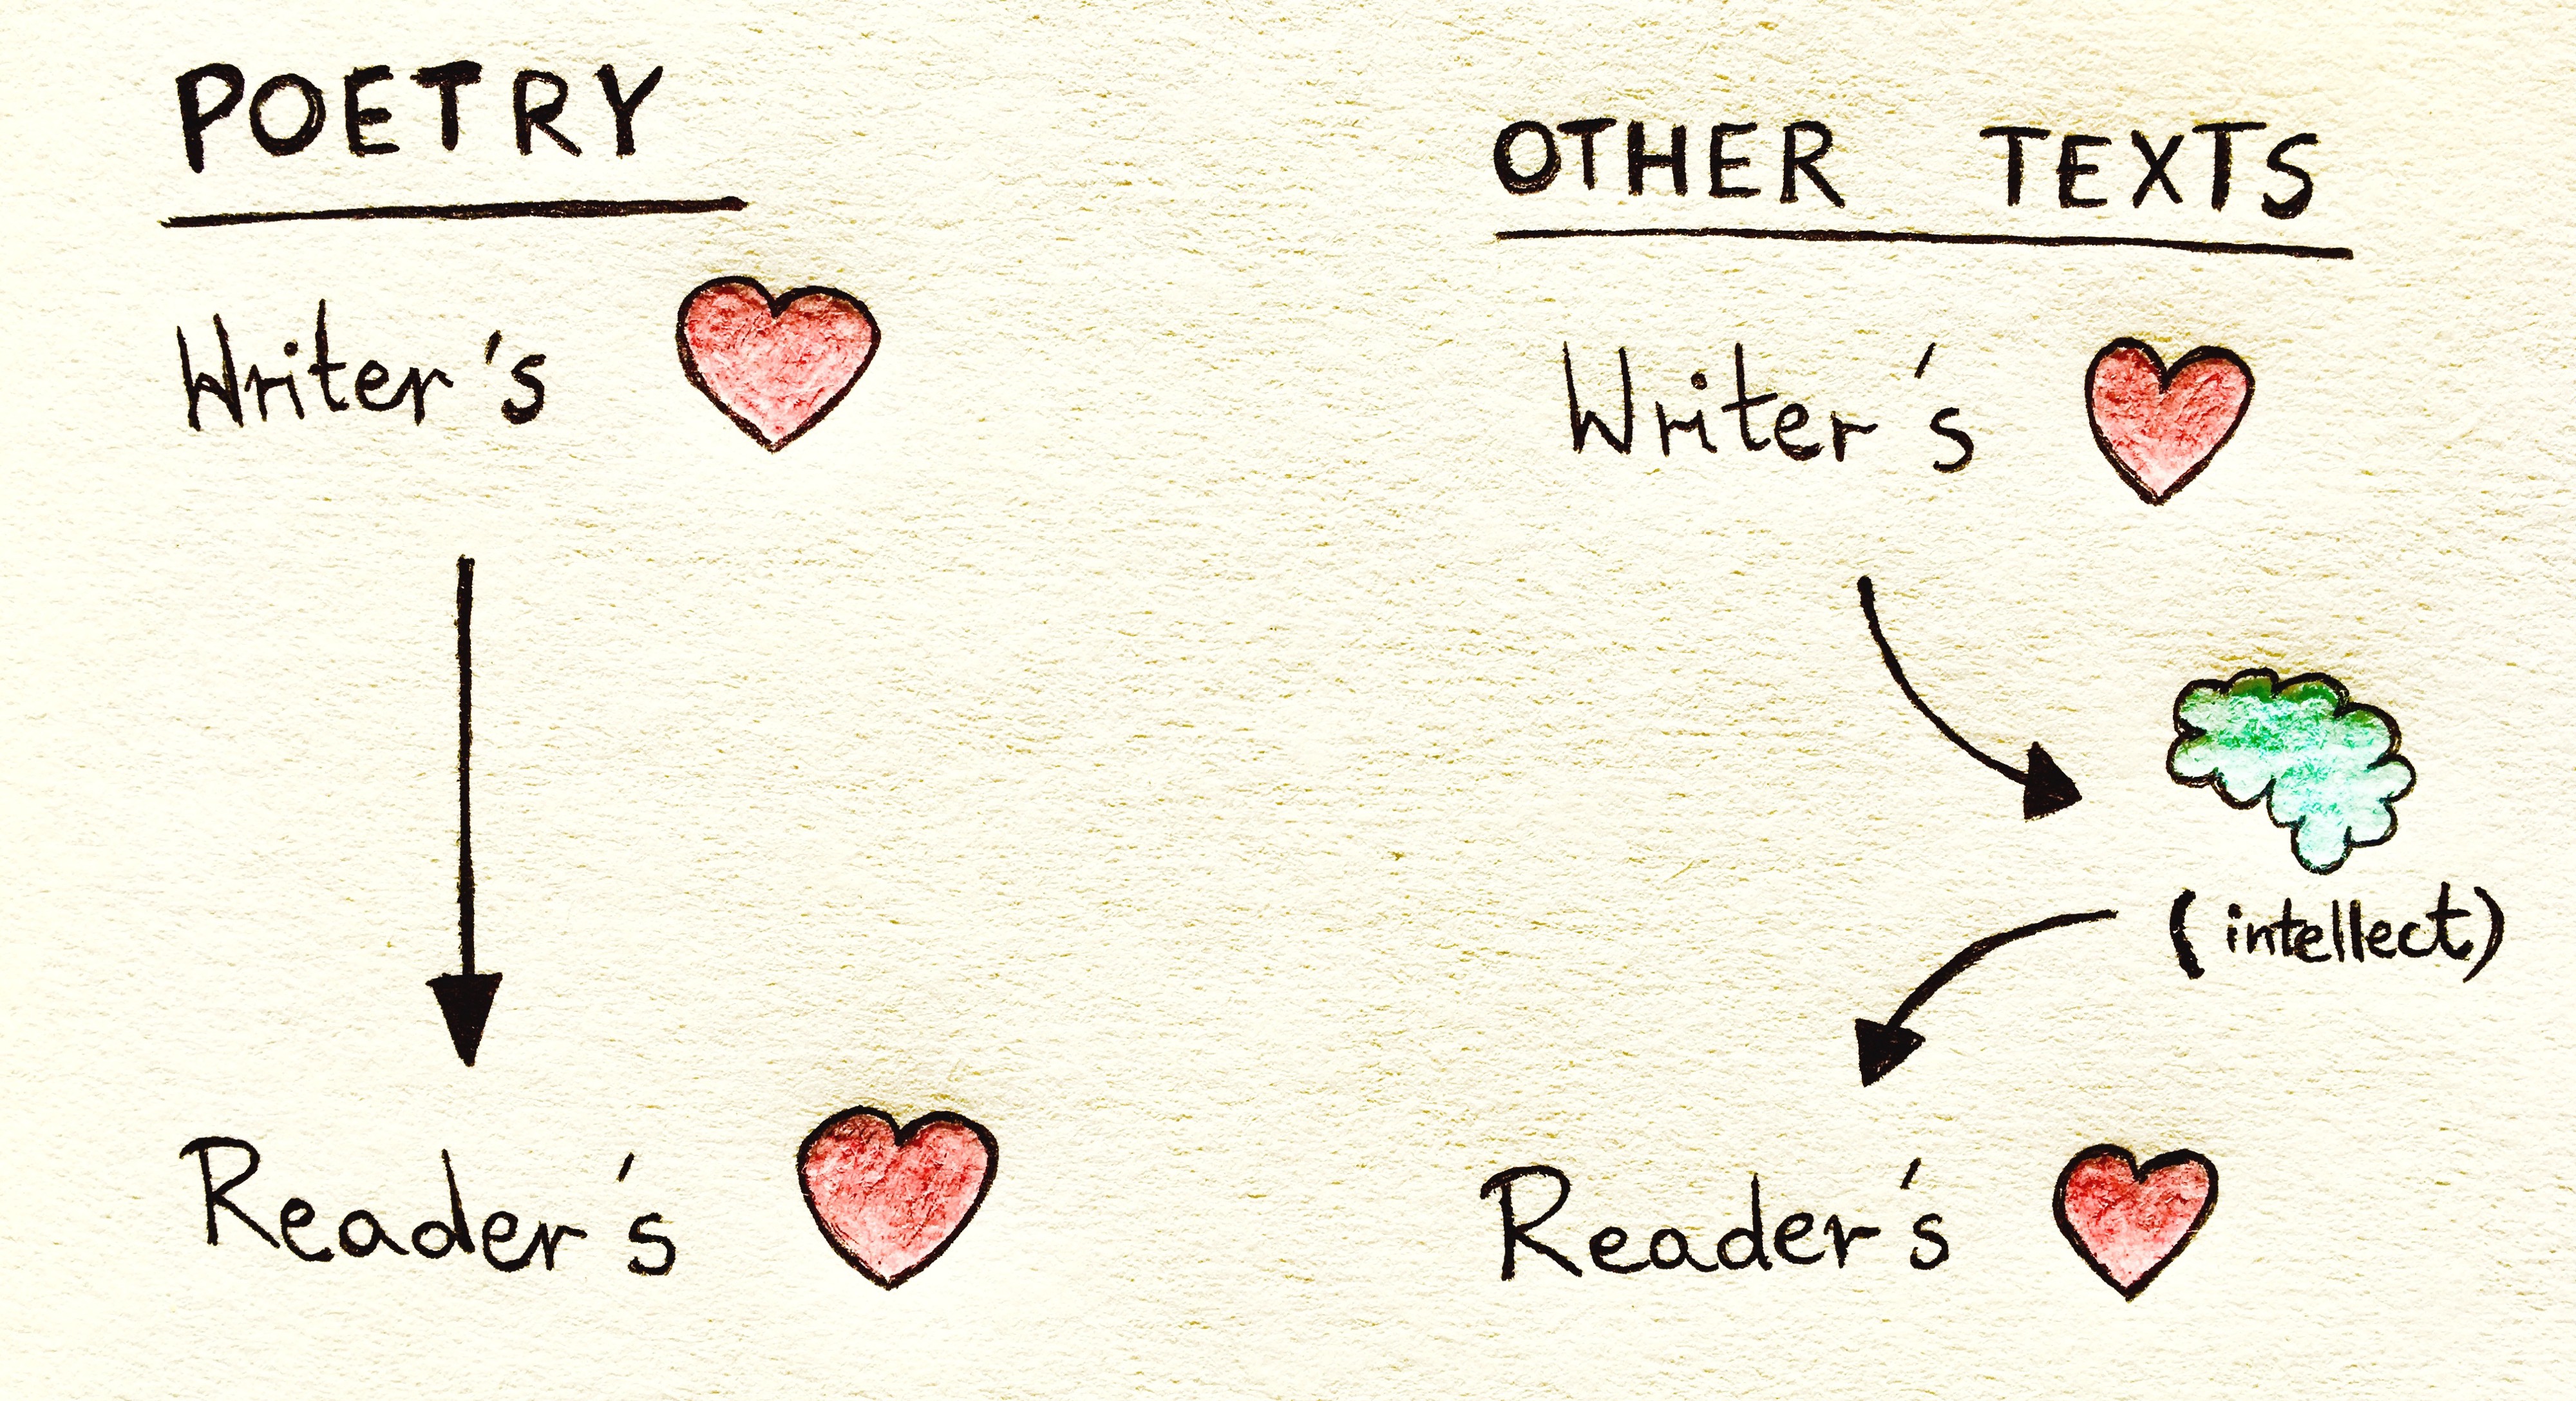 POETRY
Writer's
Reader's
OTHER TEXTS
Writer's
(intellect)
Reader's